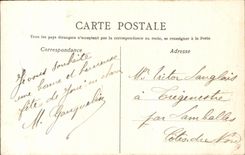 CARTE POSTALE
Tous les pays étrangers n'acceptent pas la correspondance au recto, se renseigner à la Poste
Correspondance
Adresse
Je vous souhaite
une bonne et heureuse
fête de
M. Jacqueline
Mr Victor Langlois
à Trégenestre
par Lamballe
Côtes du Nord